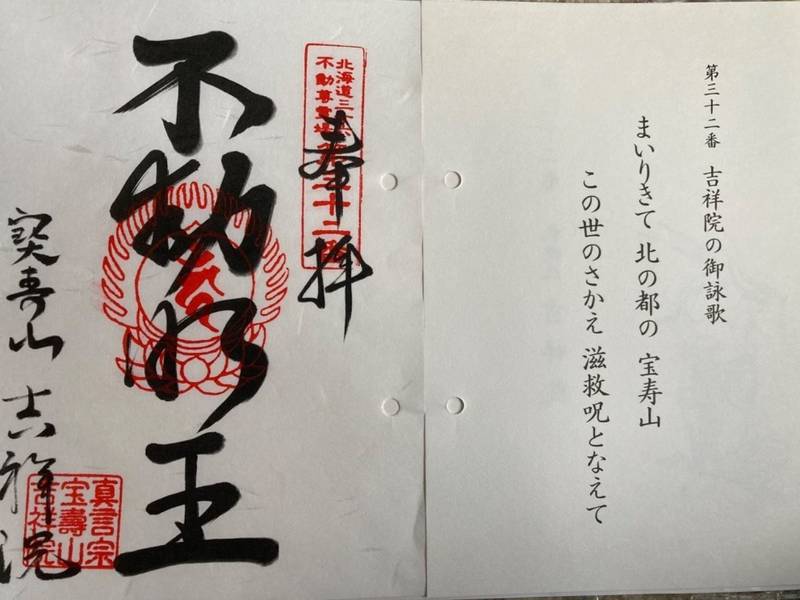 第三十二番 吉祥院の御詠歌
まいりきて 北の都の 宝寿山
この世のさかえ 滋救呪となえて
北海道三十六
不動尊霊場
第三十二番
奉拝
不動明王
寳寿山 吉祥院
真言宗
宝壽山
吉祥院